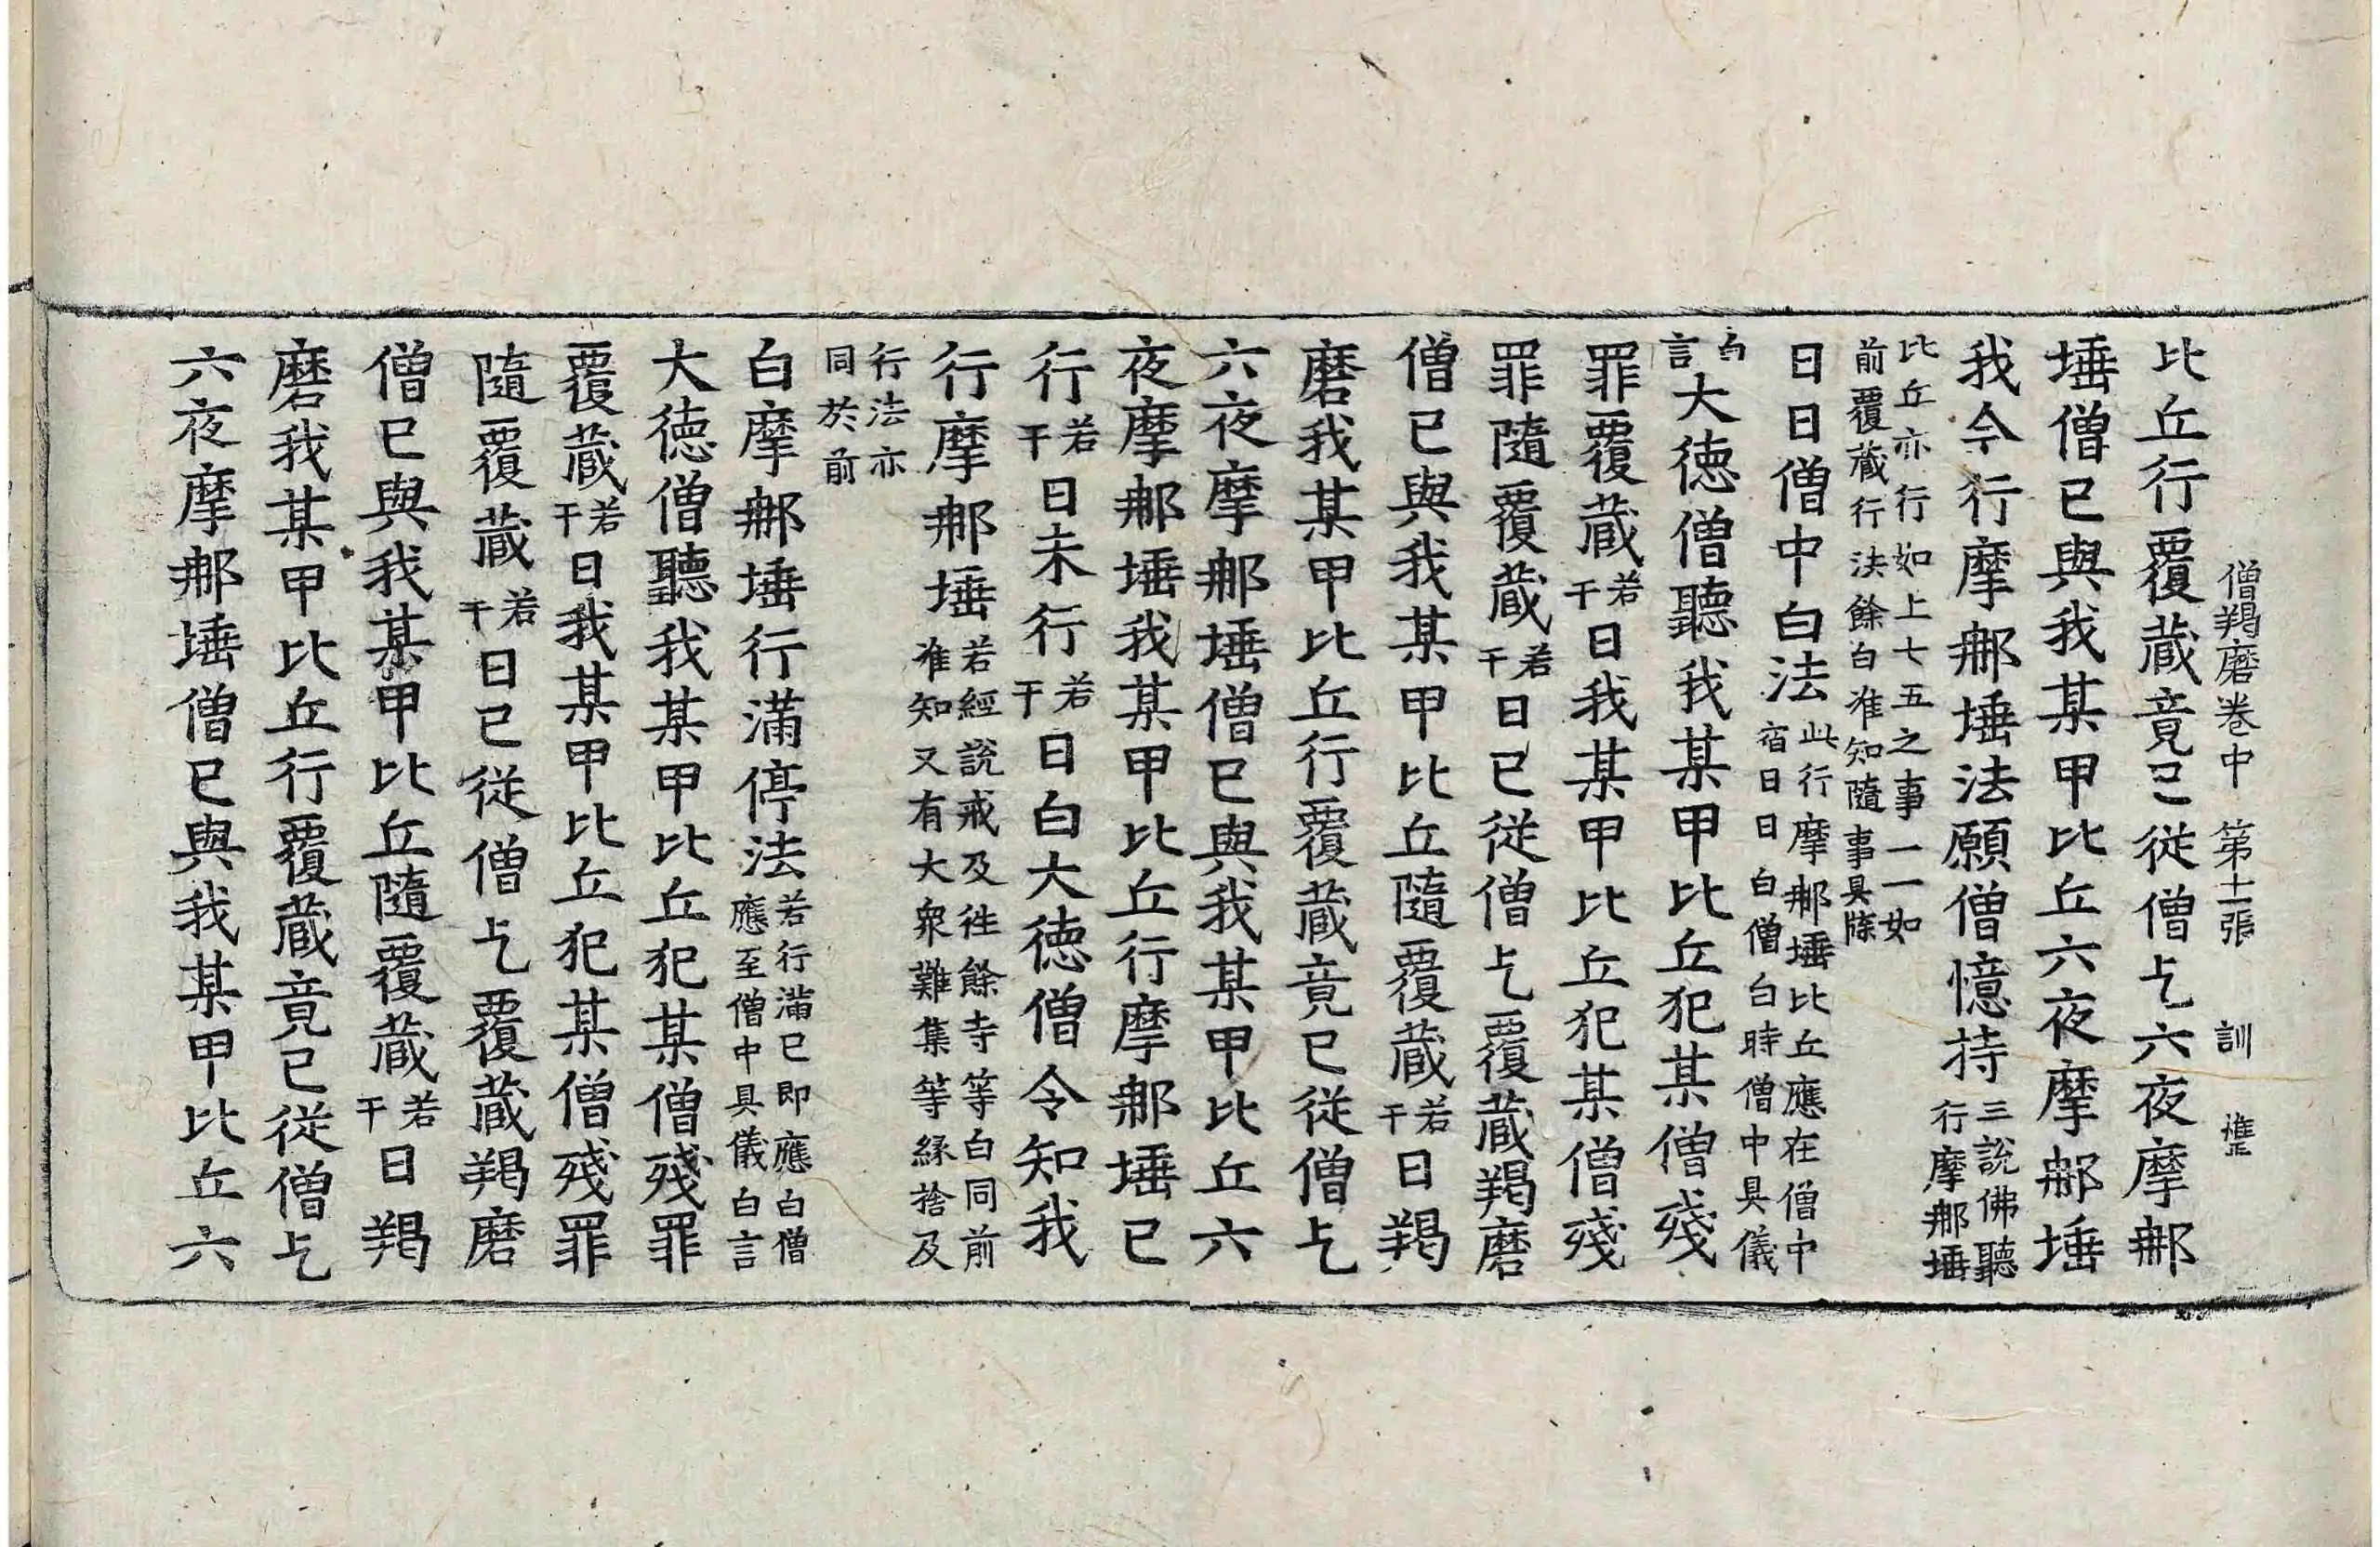 僧羯磨卷中 第十二張 訓
比丘行覆藏竟已從僧乞六夜摩那
埵僧已與我某甲比丘六夜摩那埵
我今行摩那埵法願僧憶持三說佛聽行摩那埵
比丘亦行如上七五之事一一如前覆藏行法餘白准知隨事具牒
日日僧中白法此行摩那埵比丘應在僧中宿日日白僧白時僧中具儀
白言大德僧聽我某甲比丘犯某僧殘
罪覆藏若干日我某甲比丘犯某僧殘
罪隨覆藏若干日已從僧乞覆藏羯磨
僧已與我某甲比丘隨覆藏若干日羯
磨我某甲比丘行覆藏竟已從僧乞
六夜摩那埵僧已與我某甲比丘六
夜摩那埵我某甲比丘行摩那埵已
行若干日未行若干日白大德僧令知我
行摩那埵若經說戒及往餘寺等白同前准知又有大衆難集等緣捨及
行法亦同於前
白摩那埵行滿停法若行滿已即應白僧應至僧中具儀白言
大德僧聽我某甲比丘犯某僧殘罪
覆藏若干日我某甲比丘犯某僧殘罪
隨覆藏若干日已從僧乞覆藏羯磨
僧已與我某甲比丘隨覆藏若干日羯
磨我某甲比丘行覆藏竟已從僧乞
六夜摩那埵僧已與我某甲比丘六